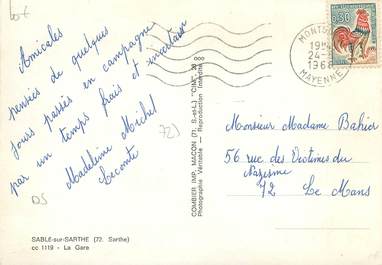 60f
Amicales
pensées de quelques
jours passés en campagne
par un temps frais et incertain
Madeleine Michel
Lecomte
72)
DS
SABLÉ-sur-SARTHE (72. Sarthe)
cc 1119 - La Gare
COMBIER IMP. MACON (71. S.-et-L.) "CIM"
Photographie Véritable — Reproduction Interdite
0.30
MONTS
19
24-
1968
MAYENNE
Monsieur Madame Bahier
56 rue des Victimes du
Nazisme
72 Le Mans